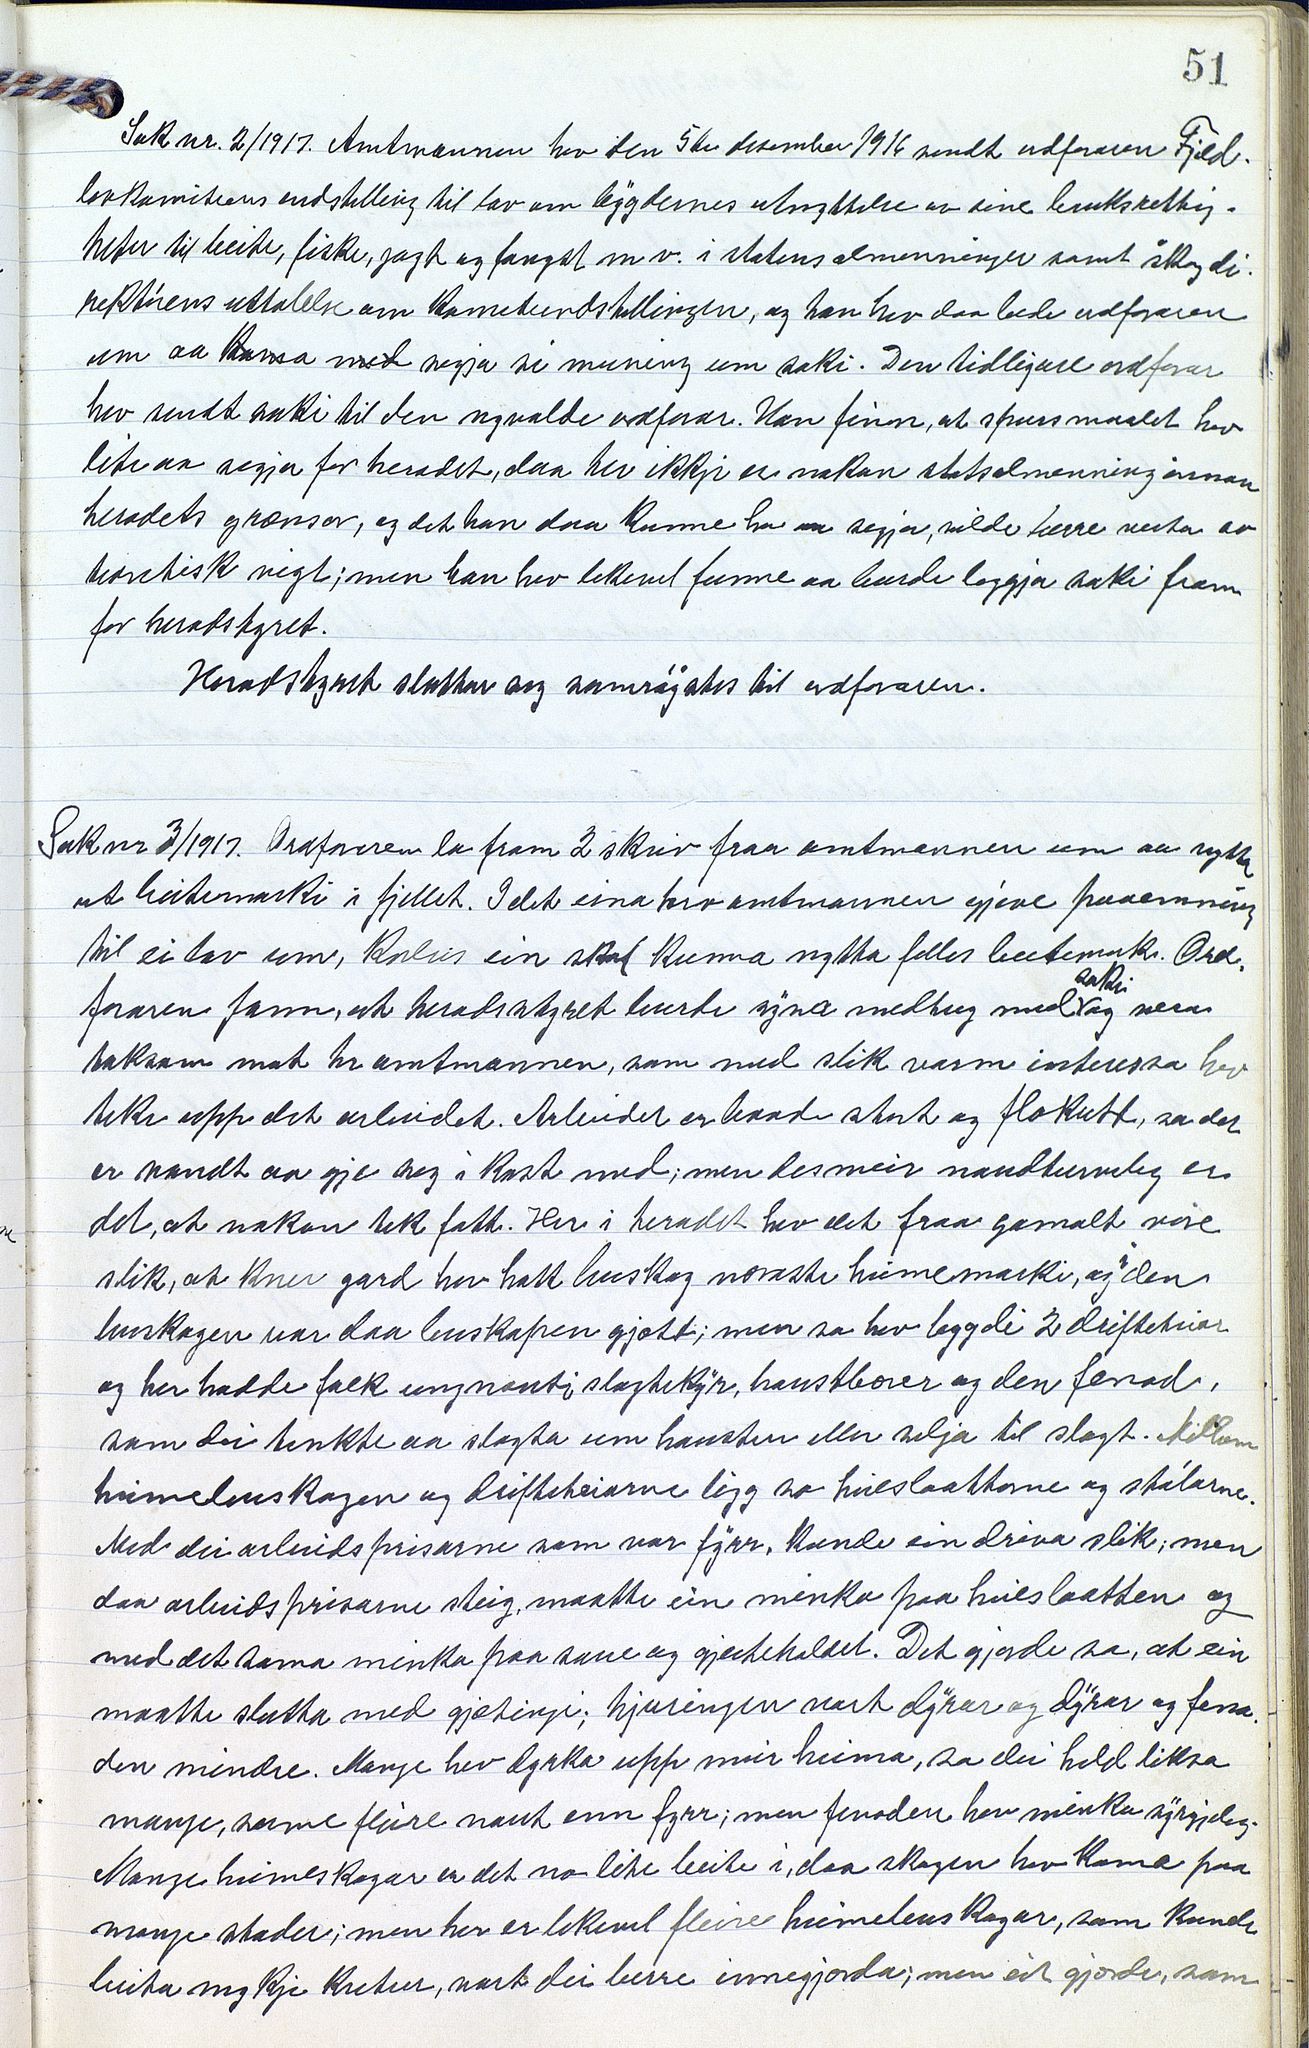 51
Sak nr. 2/1917. Amtmannen hev den 5te desember 1916 sendt ordføraren Fjeld-
lovkomiteens indstilling til lov om bygdernes utnyttelse av sine bruksrettig-
heter til beite, fiske, jagt og fangst m v. i statens almenninger samt skogdi-
rektørens uttalelse om komiteindstillingen, og han hev daa bede ordføraren
um aa koma med segja si meining um saki. Den tidligare ordførar
hev sendt saki til den nyvalde ordførar. Han finn, at spursmaalet hev
lite aa segja for heradet, daa her ikkje er nokon statsalmenning innan
heradets grænsor, og det han daa kunne ha aa segja, vilde berre verta av
teoretisk vigt; men han hev likevel funne aa burde leggja saki fram
for heradstyret.
Heradstyret sluttar seg samrøystes til ordføraren.
Sak nr 3/1917. Ordføraren la fram 2 skriv fraa amtmannen um aa nytta
ut beitemarki i fjellet. I det eina hev amtmannen gjeve paaemning
til ei lov um, korleis ein skal kunna nytta felles beitemark. Ord-
føraren fann, at heradstyret burde syna medhug med saki og vera
taksam mot hr amtmannen, som med slik varm interessa hev
teke upp det arbeidet. Arbeidet er baade stort og flokutt, so det
er vandt aa gje seg i kast med; men desmeir naudturveleg er
det, at nokon tek fatt. Her i heradet hev det fraa gamalt vore
slik, at kver gard hev hatt buskog næraste heimemarki, og i den
buskogen var daa buskapen gjætt; men so hev bygdi 2 drifteheiar
og her hadde folk ungnaut, slagtekyr, haustberer og den fenad,
som dei tenkte aa slagta um hausten eller selja til slagt. Millom
heimebuskogen og drifteheiarne ligg so heieslaattorne og stølarne.
Med dei arbeidsprisarne som var fyrr, kunde ein driva slik; men
daa arbeidsprisarne steig, maatte ein minka paa heieslaatten og
med det sama minka paa saue og gjeiteholdet. Det gjorde so, at ein
maatte slutta med gjætingi; hjuringen vart dyrar og dyrar og fena-
den mindre. Mange hev dyrka upp meir heima, so dei held likso
mange, sume fleire naut enn fyrr; men fenaden hev minka syrgjeleg.
Mange heimeskogar er det no lite beite i, daa skogen hev kome paa
mange stader; men her er likevel fleire heimebuskogar, som kunde
beita mykje kretur, vart dei berre innegjorda; men eit gjorde, som